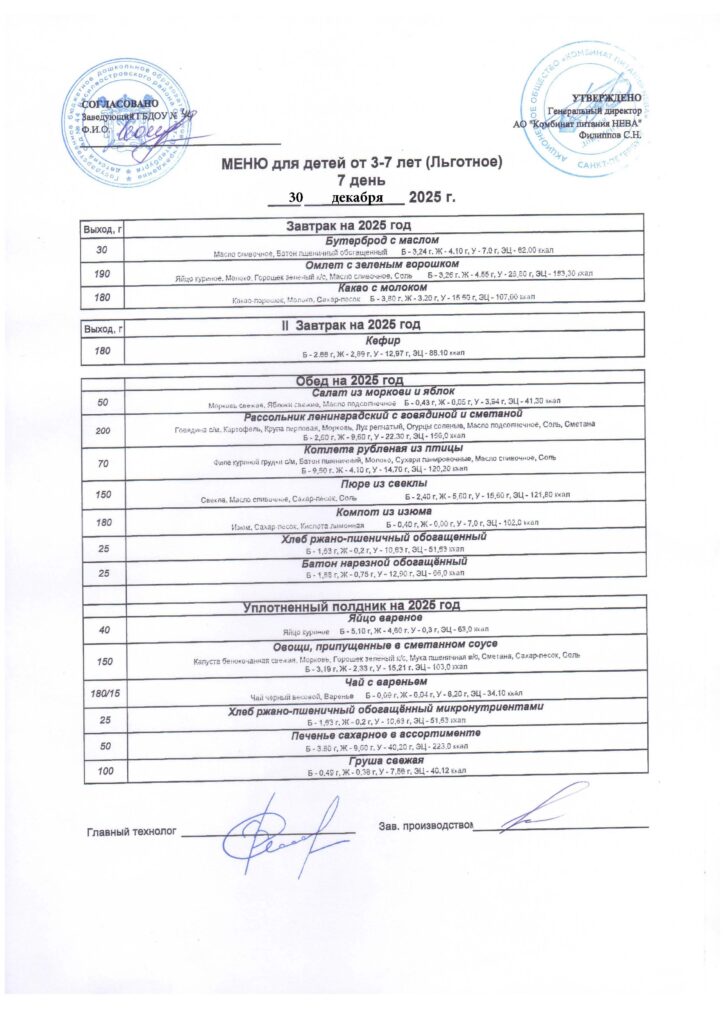 СОГЛАСОВАНО
Заведующий ГБДОУ № 44
Ф.И.О.
УТВЕРЖДЕНО
Генеральный директор
АО "Комбинат питания НЕВА"
Филиппов С.Н.
МЕНЮ для детей от 3-7 лет (Льготное)
7 день
30 декабря 2025 г.
Выход, г Завтрак на 2025 год
Бутерброд с маслом
30 Масло сливочное, Батон пшеничный обогащенный Б - 3,24 г, Ж - 4,10 г, У - 7,0 г, ЭЦ - 62,00 ккал
Омлет с зеленым горошком
190 Яйцо куриное, Молоко, Горошек зеленый к/с, Масло сливочное, Соль Б - 3,26 г, Ж - 4,55 г, У - 25,80 г, ЭЦ - 153,30 ккал
Какао с молоком
180 Какао-порошок, Молоко, Сахар-песок Б - 3,80 г, Ж - 3,20 г, У - 15,50 г, ЭЦ - 107,00 ккал
Выход, г II Завтрак на 2025 год
Кефир
180 Б - 2,88 г, Ж - 2,99 г, У - 12,97 г, ЭЦ - 88,10 ккал
Обед на 2025 год
Салат из моркови и яблок
50 Морковь свежая, Яблоки свежие, Масло подсолнечное Б - 0,43 г, Ж - 0,05 г, У - 3,94 г, ЭЦ - 41,30 ккал
Рассольник ленинградский с говядиной и сметаной
200 Говядина с/м, Картофель, Крупа перловая, Морковь, Лук репчатый, Огурцы соленые, Масло подсолнечное, Соль, Сметана
Б - 2,60 г, Ж - 9,60 г, У - 22,30 г, ЭЦ - 156,0 ккал
Котлета рубленая из птицы
70 Филе куриной грудки с/м, Батон пшеничный, Молоко, Сухари панировочные, Масло сливочное, Соль
Б - 9,50 г, Ж - 4,10 г, У - 14,70 г, ЭЦ - 120,20 ккал
Пюре из свеклы
150 Свекла, Масло сливочное, Сахар-песок, Соль Б - 2,40 г, Ж - 5,60 г, У - 15,60 г, ЭЦ - 121,80 ккал
Компот из изюма
180 Изюм, Сахар-песок, Кислота лимонная Б - 0,40 г, Ж - 0,00 г, У - 7,0 г, ЭЦ - 102,0 ккал
Хлеб ржано-пшеничный обогащенный
25 Б - 1,63 г, Ж - 0,2 г, У - 10,63 г, ЭЦ - 51,63 ккал
Батон нарезной обогащённый
25 Б - 1,88 г, Ж - 0,75 г, У - 12,90 г, ЭЦ - 66,0 ккал
Уплотненный полдник на 2025 год
Яйцо вареное
40 Яйцо куриное Б - 5,10 г, Ж - 4,60 г, У - 0,3 г, ЭЦ - 63,0 ккал
Овощи, припущенные в сметанном соусе
150 Капуста белокочанная свежая, Морковь, Горошек зеленый к/с, Мука пшеничная в/с, Сметана, Сахар-песок, Соль
Б - 3,19 г, Ж - 2,33 г, У - 15,21 г, ЭЦ - 103,0 ккал
Чай с вареньем
180/15 Чай черный весовой, Варенье Б - 0,09 г, Ж - 0,04 г, У - 8,20 г, ЭЦ - 34,10 ккал
Хлеб ржано-пшеничный обогащённый микронутриентами
25 Б - 1,63 г, Ж - 0,2 г, У - 10,63 г, ЭЦ - 51,63 ккал
Печенье сахарное в ассортименте
50 Б - 3,80 г, Ж - 9,00 г, У - 40,20 г, ЭЦ - 223,0 ккал
Груша свежая
100 Б - 0,49 г, Ж - 0,38 г, У - 7,58 г, ЭЦ - 40,12 ккал
Главный технолог
Зав. производством